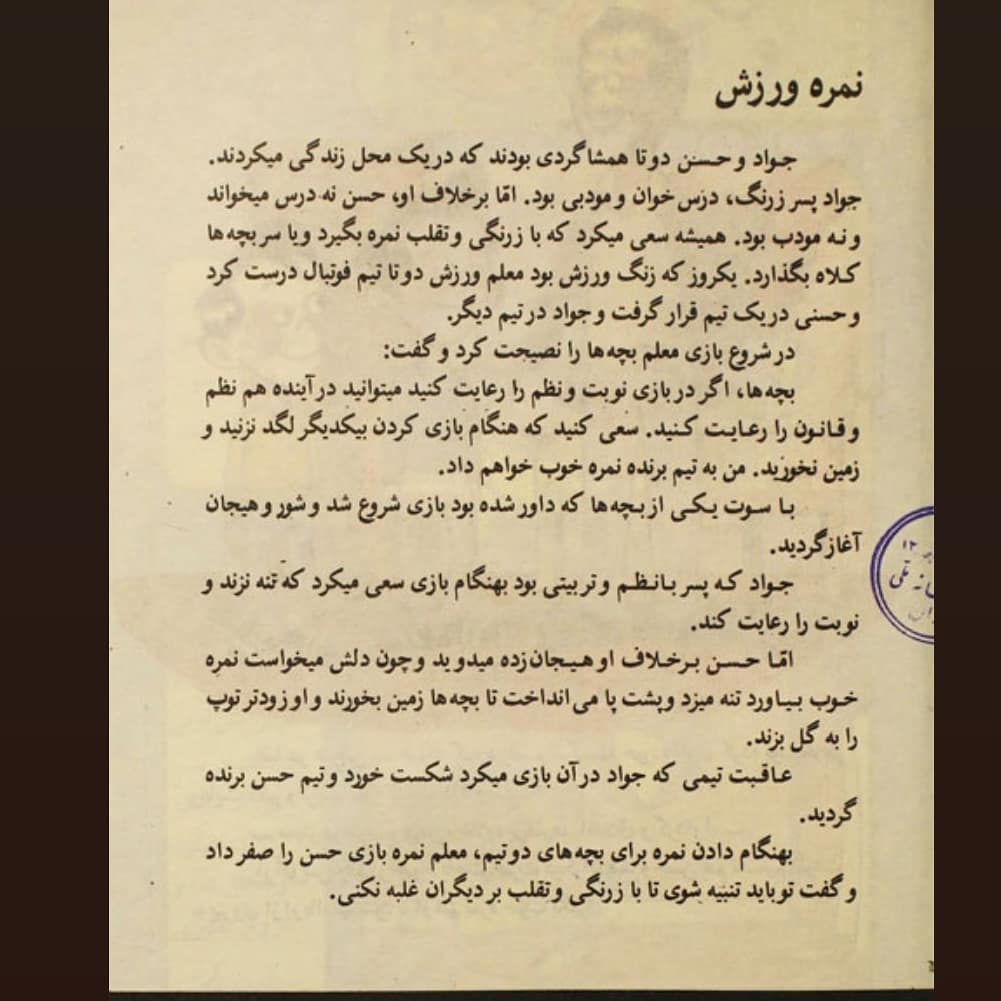 نمره ورزش
جواد و حسن دو تا همشاگردی بودند که در یک محل زندگی میکردند.
جواد پسر زرنگ، درس خوان و مودبی بود. امّا برخلاف او، حسن نه درس میخواند
و نه مودب بود. همیشه سعی میکرد که با زرنگی و تقلب نمره بگیرد و یا سر بچه ها
کلاه بگذارد. یکروز که زنگ ورزش بود معلم ورزش دو تا تیم فوتبال درست کرد
و حسنی در یک تیم قرار گرفت و جواد در تیم دیگر.
در شروع بازی معلم بچه ها را نصیحت کرد و گفت:
بچه ها، اگر در بازی نوبت و نظم را رعایت کنید میتوانید در آینده هم نظم
و قانون را رعایت کنید. سعی کنید که هنگام بازی کردن بیکدیگر لگد نزنید و
زمین نخورید. من به تیم برنده نمره خوب خواهم داد.
با سوت یکی از بچه ها که داور شده بود بازی شروع شد و شور و هیجان
آغاز گردید.
جواد که پسر با نظم و تربیتی بود بهنگام بازی سعی میکرد که تنه نزند و
نوبت را رعایت کند.
امّا حسن برخلاف او هیجان زده میدوید و چون دلش میخواست نمره
خوب بیاورد تنه میزد و پشت پا می انداخت تا بچه ها زمین بخورند و او زودتر توپ
را به گل بزند.
عاقبت تیمی که جواد در آن بازی میکرد شکست خورد و تیم حسن برنده
گردید.
بهنگام دادن نمره برای بچه های دو تیم، معلم نمره بازی حسن را صفر داد
و گفت تو باید تنبیه شوی تا با زرنگی و تقلب بر دیگران غلبه نکنی.